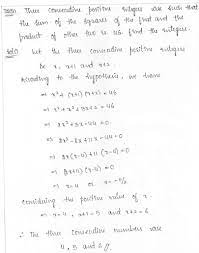 Three consecutive positive integers are such that
the sum of the squares of the first and the
product of other two is 46, find the integers.
Let the three consecutive positive integers
be x, x+1 and x+2.
According to the hypothesis, we have
⇒ x² + (x+1) (x+2) = 46
⇒ x² + x² + 3x + 2 = 46
⇒ 2x² + 3x - 44 = 0
⇒ 2x² - 8x + 11x - 44 = 0
⇒ 2x(x-4) + 11 (x-4) = 0
(x-4) = 0
⇒ x = 4 or x = -11/2
Considering the positive value of x.
⇒ x = 4, x+1 = 5 and x+2 = 6
∴ The three consecutive numbers are
4, 5 and 6 //